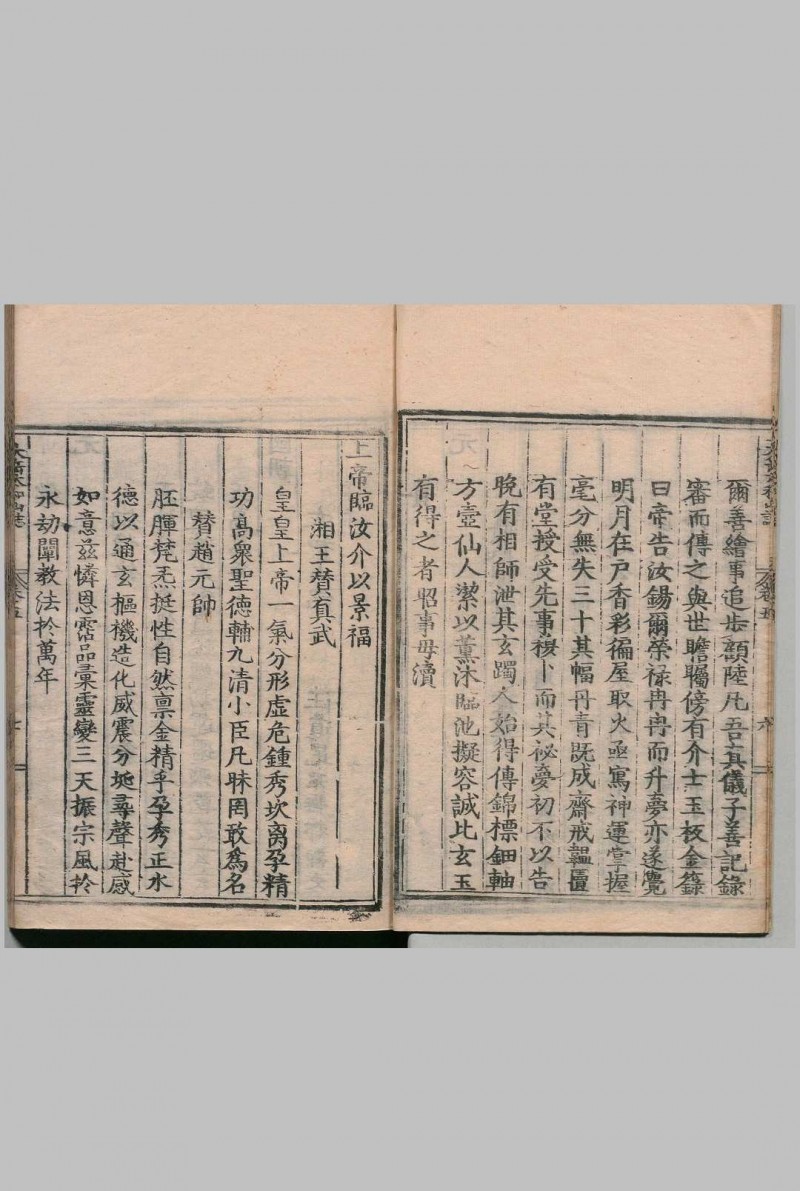 爾善繪事追步顧陸凡吾真儀子善記錄
審而傳之與世瞻矚傍有介士玉板金籙
曰帝告汝錫爾榮祿冉冉而升夢亦遂覺
明月在戶香彩徧屋取火亟寫神運掌握
毫分無失三十其幅丹青既成齋戒韞匵
有堂授受先事櫬卜而其祕夢初不以告
晚有相師泄其玄躅人始得傳錦標鈿軸
方壺仙人潔以薰沐臨池擬容誠比玄玉
有得之者昭事毋瀆
上帝臨汝介以景福
湘王賛真武
皇皇上帝一氣分形虛危鍾秀坎离孕精
功高衆聖德輔九清小臣凡昧罔敢爲名
賛趙元帥
胚腪梵炁挺性自然禀金精乎孕秀正水
德以通玄樞機造化威震分埏尋聲赴感
如意兹憐恩霑品彙靈變三天振宗風於
永劫闡教法於萬年